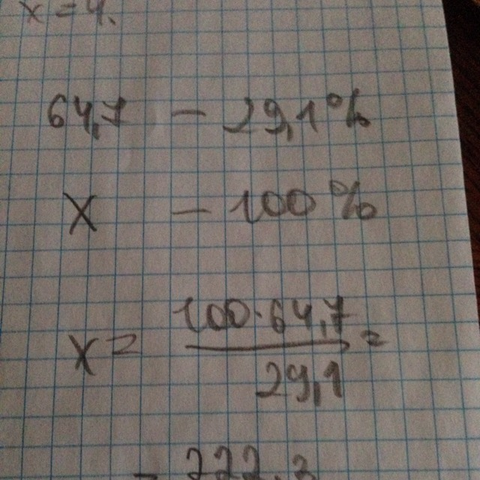 x = 4.
64,7 – 29,1%
X – 100%
X = 100·64,7 / 29,1 =
= 222,3